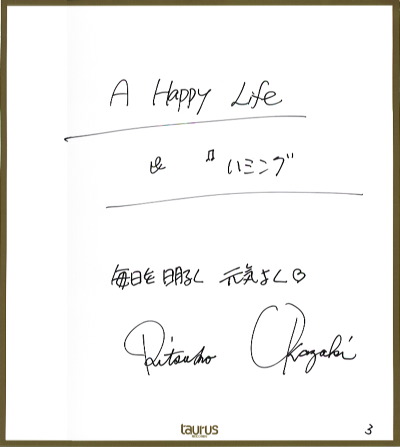 A Happy Life
& ♫ ハミング
毎日を明るく 元気よく♡
Ritsuko Okazaki
taurus
3